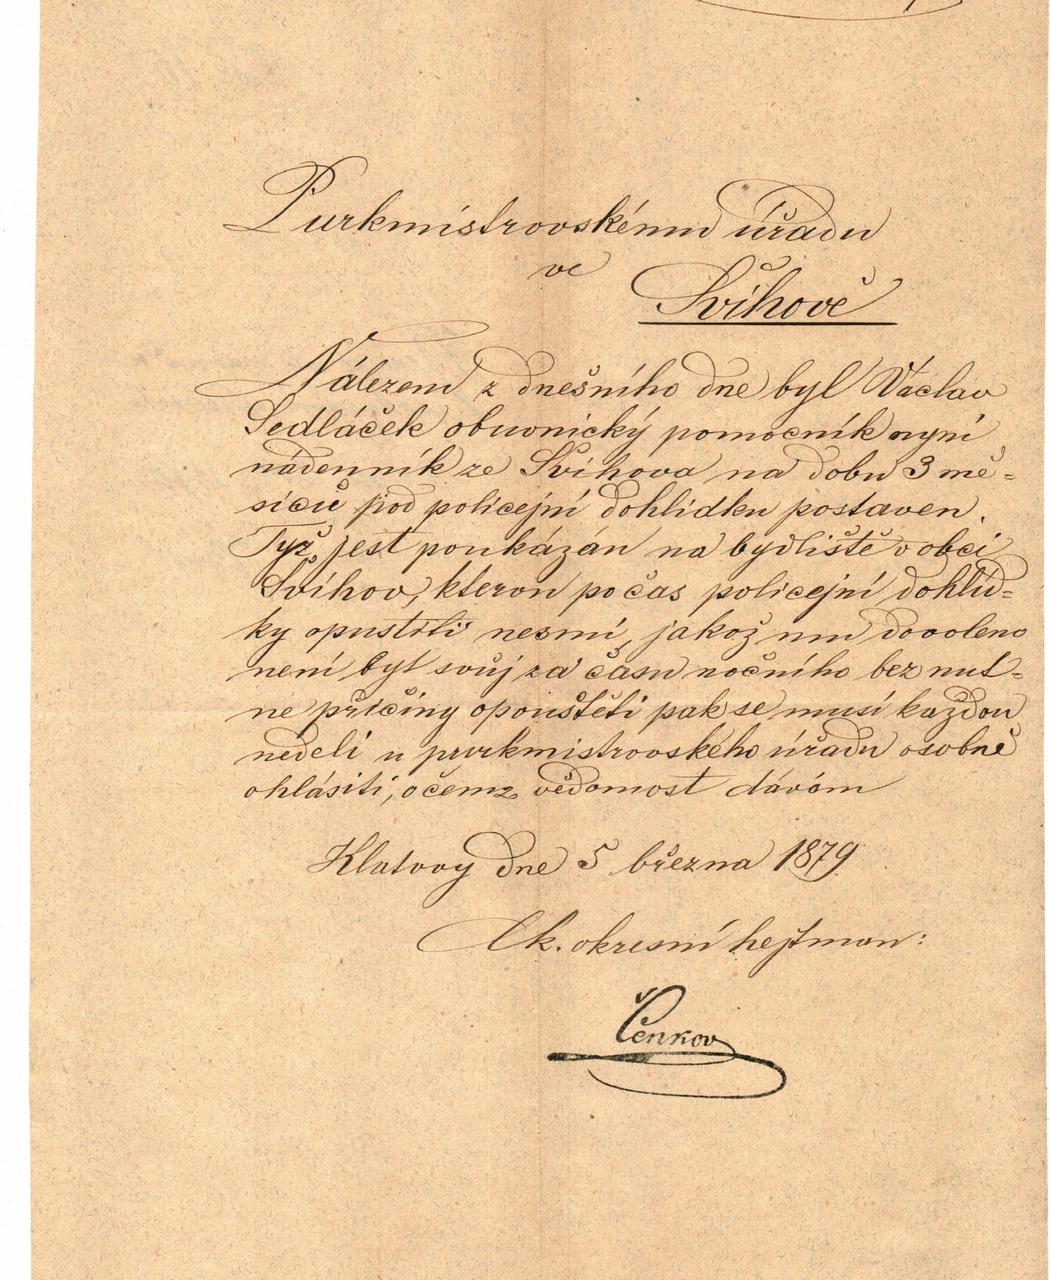 Purkmistrovskému úřadu
ve
Švihově
Nálezem z dnešního dne byl Václav
Sedláček obuvnický pomocník nyní
nádenník ze Švihova na dobu 3 mě-
síců pod policejní dohlídku postaven.
Týž jest poukázán na bydliště v obci
Švihov, kterou po čas policejní dohlíd-
ky opustiti nesmí, jakož mu dovoleno
není byt svůj za času nočního bez nut-
né příčiny opouštěti pak se musí každou
neděli u purkmistrovského úřadu osobně
ohlásiti, o čemž vědomost dávám
Klatovy dne 5 března 1879
k. okresní hejtman:
Čenkov